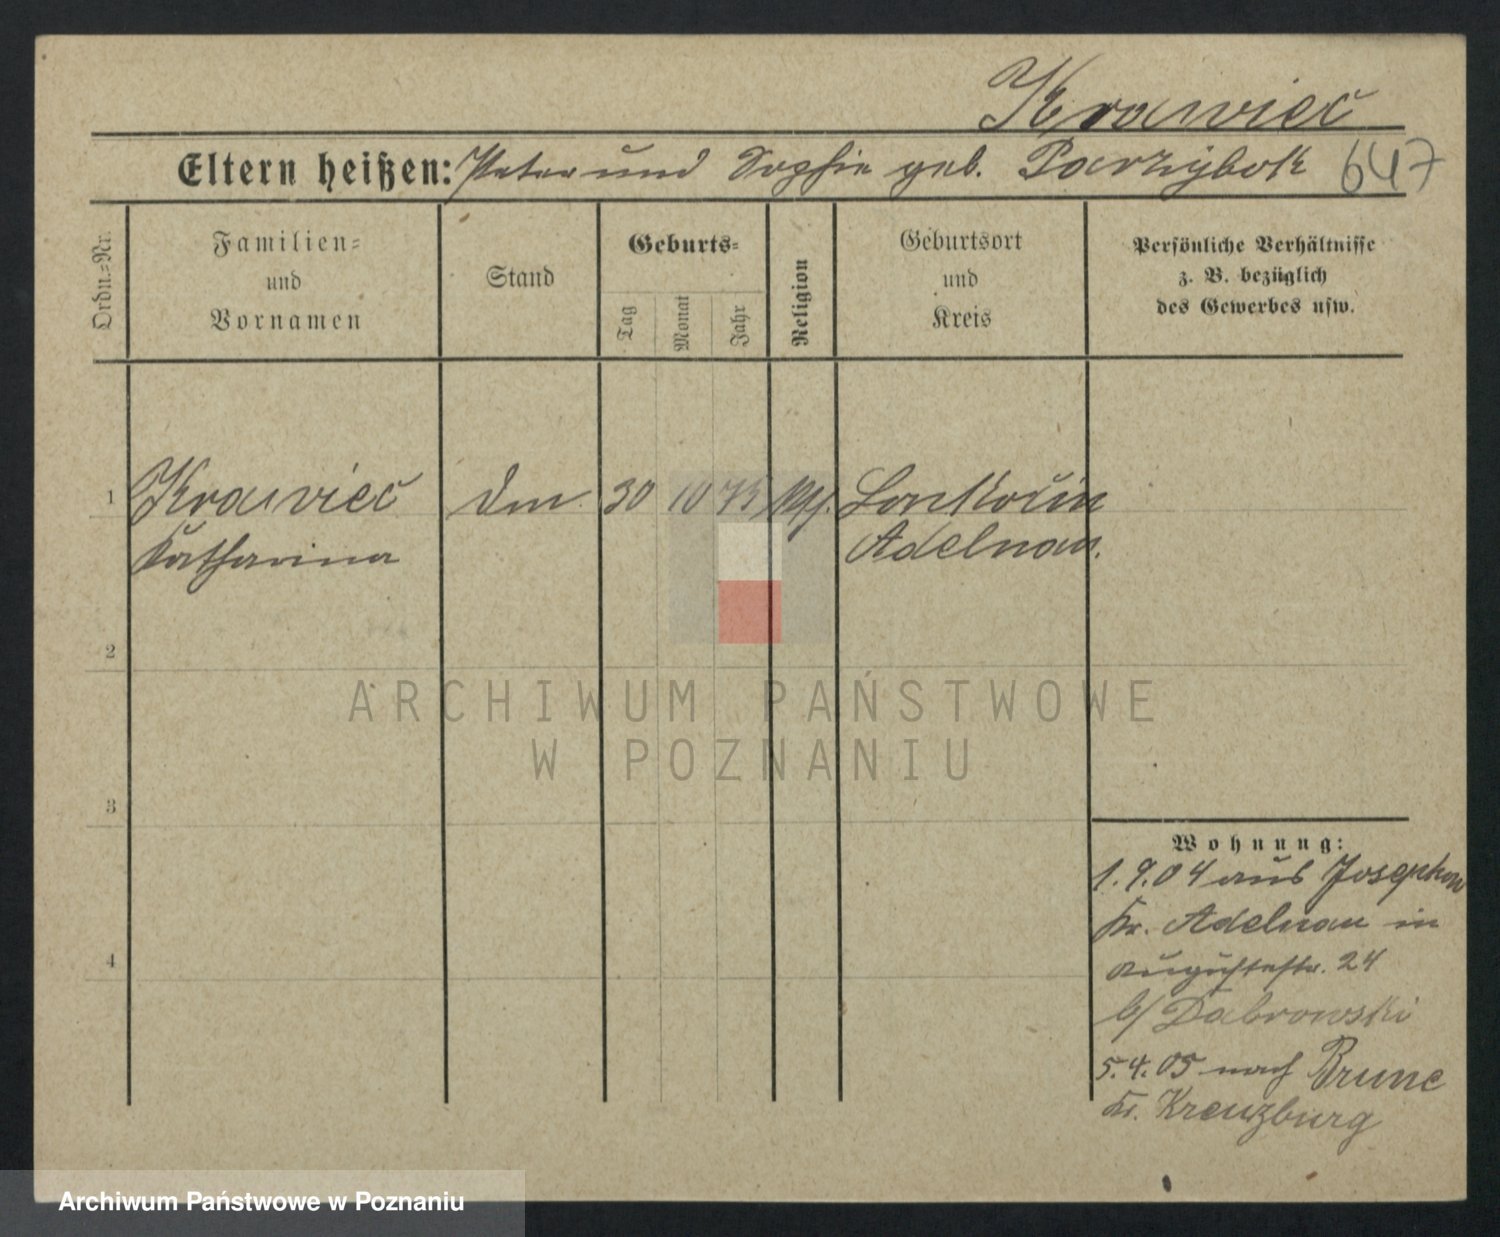 Krawiec
Eltern heißen: Peter und Sophie geb. Parzybok 647
Ordn.=Nr.
Familien=
und
Vornamen
Stand
Geburts=
Tag
Monat
Jahr
Religion
Geburtsort
und
Kreis
Persönliche Verhältnisse
z. B. bezüglich
des Gewerbes usw.
1 Krawiec 30 10 75 kth.
Katharina Adelnau.
2
3
4
ARCHIWUM PAŃSTWOWE
W POZNANIU
Wohnung:
1.9.04 aus Josephow
Kr. Adelnau in
Augustastr. 24
b/ Dabrowski
5.4.05 nach Brune
Kr. Kreuzburg
Archiwum Państwowe w Poznaniu